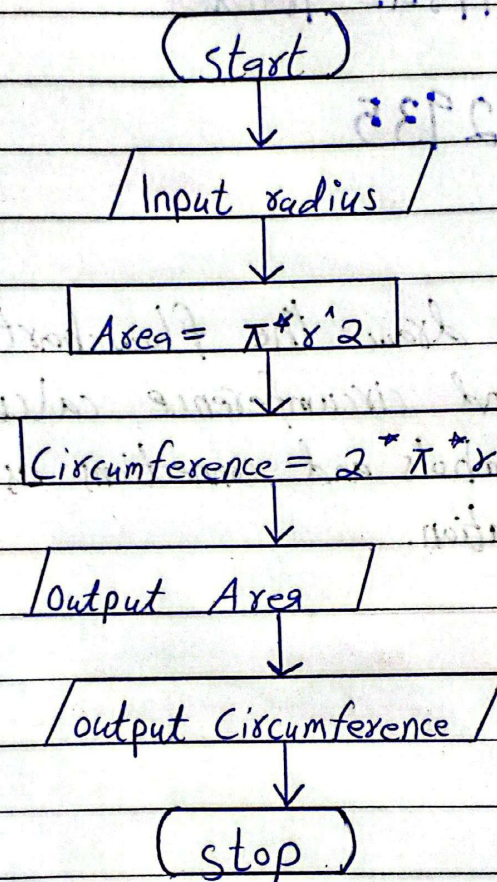 start
Input radius
Area = π*r^2
Circumference = 2*π*r
output Area
output Circumference
stop